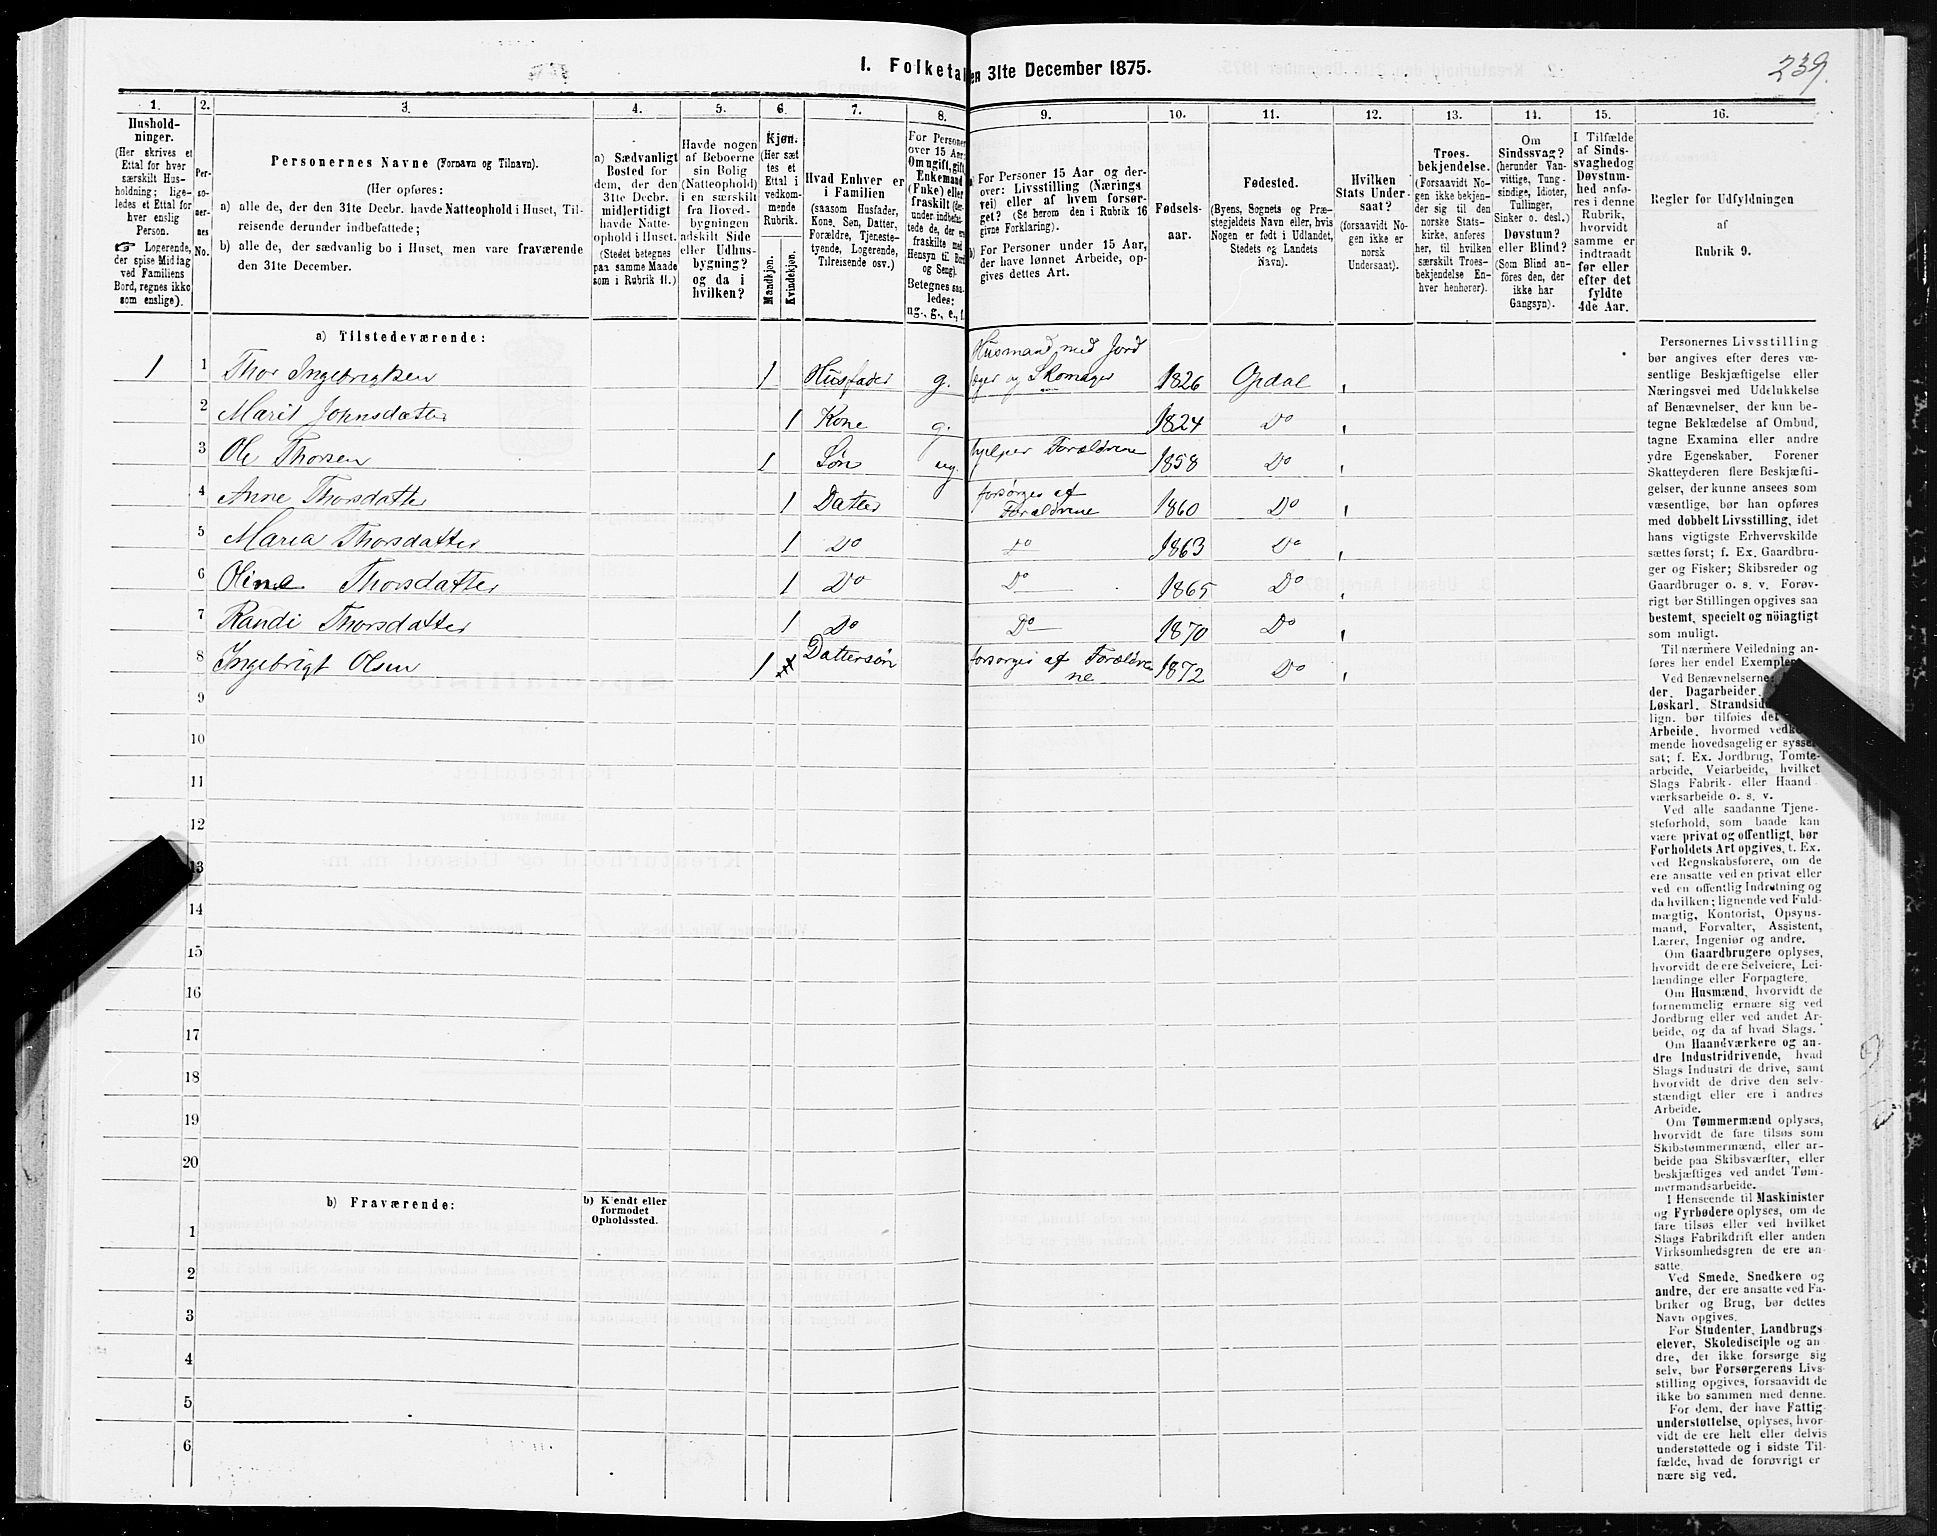 I. Folketal en 31te December 1875.
239.
1.
Hushold-
ninger.
(Her skrives et
Ettal for hver
særskilt Hus-
holdning; lige-
ledes et Ettal for
hver enslig
Person.
Logerende,
der spise Middag
ved Familiens
Bord, regnes ikke
som enslige).
2.
Per-
so-
ner-
nes
No.
3.
Personernes Navne (Fornavn og Tilnavn).
(Her opføres:
a) alle de, der den 31te Decbr. havde Natteophold i Huset, Til-
reisende derunder indbefattede;
b) alle de, der sædvanlig bo i Huset, men vare fraværende
den 31te December.
4.
a) Sædvanligt
Bosted for
dem, der den
31te Decbr.
midlertidigt
havde Natte-
ophold i Huset.
(Stedet betegnes
paa samme Maade
som i Rubrik 11.)
5.
Havde nogen
af Beboerne
sin Bolig
(Natteophold)
i en særskilt
fra Hoved-
bygningen
adskilt Side
eller Udhus-
bygning?
og da i
hvilken?
6.
Kjøn.
(Her sæt-
tes et
Ettal i
vedkom-
mende
Rubrik.
Mandkjøn.
Kvindekjøn.
7.
Hvad Enhver er
i Familien
(saasom Husfader,
Kone, Søn, Datter,
Forældre, Tjeneste-
tyende, Logerende,
Tilreisende osv.)
8.
For Personer
over 15 Aar:
Om ugift, gift,
Enkemand
(Enke) eller
fraskilt
fraskilte med
Hensyn til Bord
og Seng).
Betegnes saa-
ledes:
ug., g., e., f.
9.
a) For Personer 15 Aar og der-
over: Livsstilling (Nærings
vei) eller af hvem forsør-
get? (Se herom den i Rubrik 16
givne Forklaring).
b) For Personer under 15 Aar,
der have lønnet Arbeide, op-
gives dettes Art.
10.
Fødsels-
aar.
11.
Fødested.
(Byens, Sognets og Præ-
stegjeldets Navn eller, hvis
Nogen er født i Udlandet,
Stedets og Landets
Navn).
12.
Hvilken
Stats Under-
saat?
(forsaavidt No-
gen ikke er
norsk
Undersaat).
13.
Troes-
bekjendelse.
(Forsaavidt No-
gen ikke bekjen-
der sig til den
norske Stats-
kirke, anføres
her, til hvilken
særskilt Troes-
bekjendelse En-
hver henhører).
14.
Om
Sindssvag?
(herunder Van-
vittige, Tung-
sindige, Idioter,
Tullinger,
Sinker o. desl.)
Døvstum?
eller Blind?
(Som Blind an-
føres den, der
ikke har
Gangsyn).
15.
I Tilfælde
af Sinds-
svaghed og
Døvstum-
hed anfø-
res i denne
Rubrik,
hvorvidt
samme er
indtraadt
før eller
efter det
fyldte
4de Aar.
16.
Regler for Udfyldningen
af
Rubrik 9.
a) Tilstedeværende:
1 1 Thor Ingebrigtsen 1 Husfader g. Husmand med Jord
og Skomager 1826 Opdal
2 Marit Johnsdatter 1 Kone g. 1824 Do
3 Ole Thorsen 1 Søn ug. hjelper Forældrene 1858 Do
4 Anne Thorsdatter 1 Datter forsørges af
Forældrene 1860 Do
5 Maria Thorsdatter 1 Do Do 1863 Do
6 Oline Thorsdatter 1 Do Do 1865 Do
7 Randi Thorsdatter 1 Do Do 1870 Do
8 Ingebrigt Olsen 1 Dattersøn forsørges af Forældre
ne 1872 Do
9
10
11
12
13
14
15
16
17
18
19
20
b) Fraværende:
b) Kjendt eller
formodet
Opholdssted.
1
2
3
4
5
6
Personernes Livsstilling
bør angives efter deres væ-
sentlige Beskjæftigelse eller
Næringsvei med Udelukkelse
af Benævnelser, der kun be-
tegne Beklædelse af Ombud,
tagne Examina eller andre
ydre Egenskaber. Forener
Skatteyderen flere Beskjæfti-
gelser, der kunne ansees som
væsentlige, bør han opføres
med dobbelt Livsstilling, idet
hans vigtigste Erhvervskilde
sættes først; f. Ex. Gaardbru-
ger og Fisker; Skibsreder og
Gaardbruger o. s. v. Forøv-
rigt bør Stillingen opgives saa
bestemt, specielt og nöiagtigt
som muligt.
Til nærmere Veiledning an-
føres her endel Exempler:
Ved Benævnelserne:
der, Dagarbeider,
Løskarl, Strandsid
lign. bør tilføies det
Arbeide, hvormed vedkom-
mende hovedsagelig er syssel-
sat; f. Ex. Jordbrug, Tomte-
arbeide, Veiarbeide, hvilket
Slags Fabrik- eller Haand
værksarbeide o. s. v.
Ved alle saadanne Tjene-
steforhold, som baade kan
være privat og offentligt, bør
Forholdets Art opgives, t. Ex.
ved Regnskabsførere, om de
ere ansatte ved en privat eller
ved en offentlig Indretning og
da hvilken; lignende ved Fuld-
mægtig, Kontorist, Opsyns-
mand, Forvalter, Assistent,
Lærer, Ingeniør og andre.
Om Gaardbrugere oplyses,
hvorvidt de ere Selveiere, Lei-
lændinge eller Forpagtere.
Om Husmænd, hvorvidt de
fornemmelig ernære sig ved
Jordbrug eller ved andet Ar-
beide, og da af hvad Slags.
Om Haandværkere og an-
dre Industridrivende, hvad
Slags Industri de drive, samt
hvorvidt de drive den selv-
stændigt eller ere i andres
Arbeide.
Om Tømmermænd oplyses,
hvorvidt de fare tilsøs som
Skibstømmermænd, eller ar-
beide paa Skibsværfter, eller
beskjæftiges ved andet Tøm-
mermandsarbeide.
I Henseende til Maskinister
og Fyrbødere oplyses, om de
fare tilsøs eller ved hvilket
Slags Fabrikdrift eller anden
Virksomhedsgren de ere an-
satte.
Ved Smede, Snedkere og
andre, der ere ansatte ved Fa-
briker og Brug, bør dettes
Navn opgives.
For Studenter, Landbrugs
elever, Skoledisciple og an
dre, der ikke forsørge sig
selv, bør Forsørgerens Livs-
stilling opgives, forsaavidt de
ikke bo sammen med denne.
For dem, der have Fattig
understøttelse, oplyses, hvor-
vidt de ere helt eller delvis
understøttede og i sidste Til-
fælde, hvad de forøvrigt er
nære sig ved.